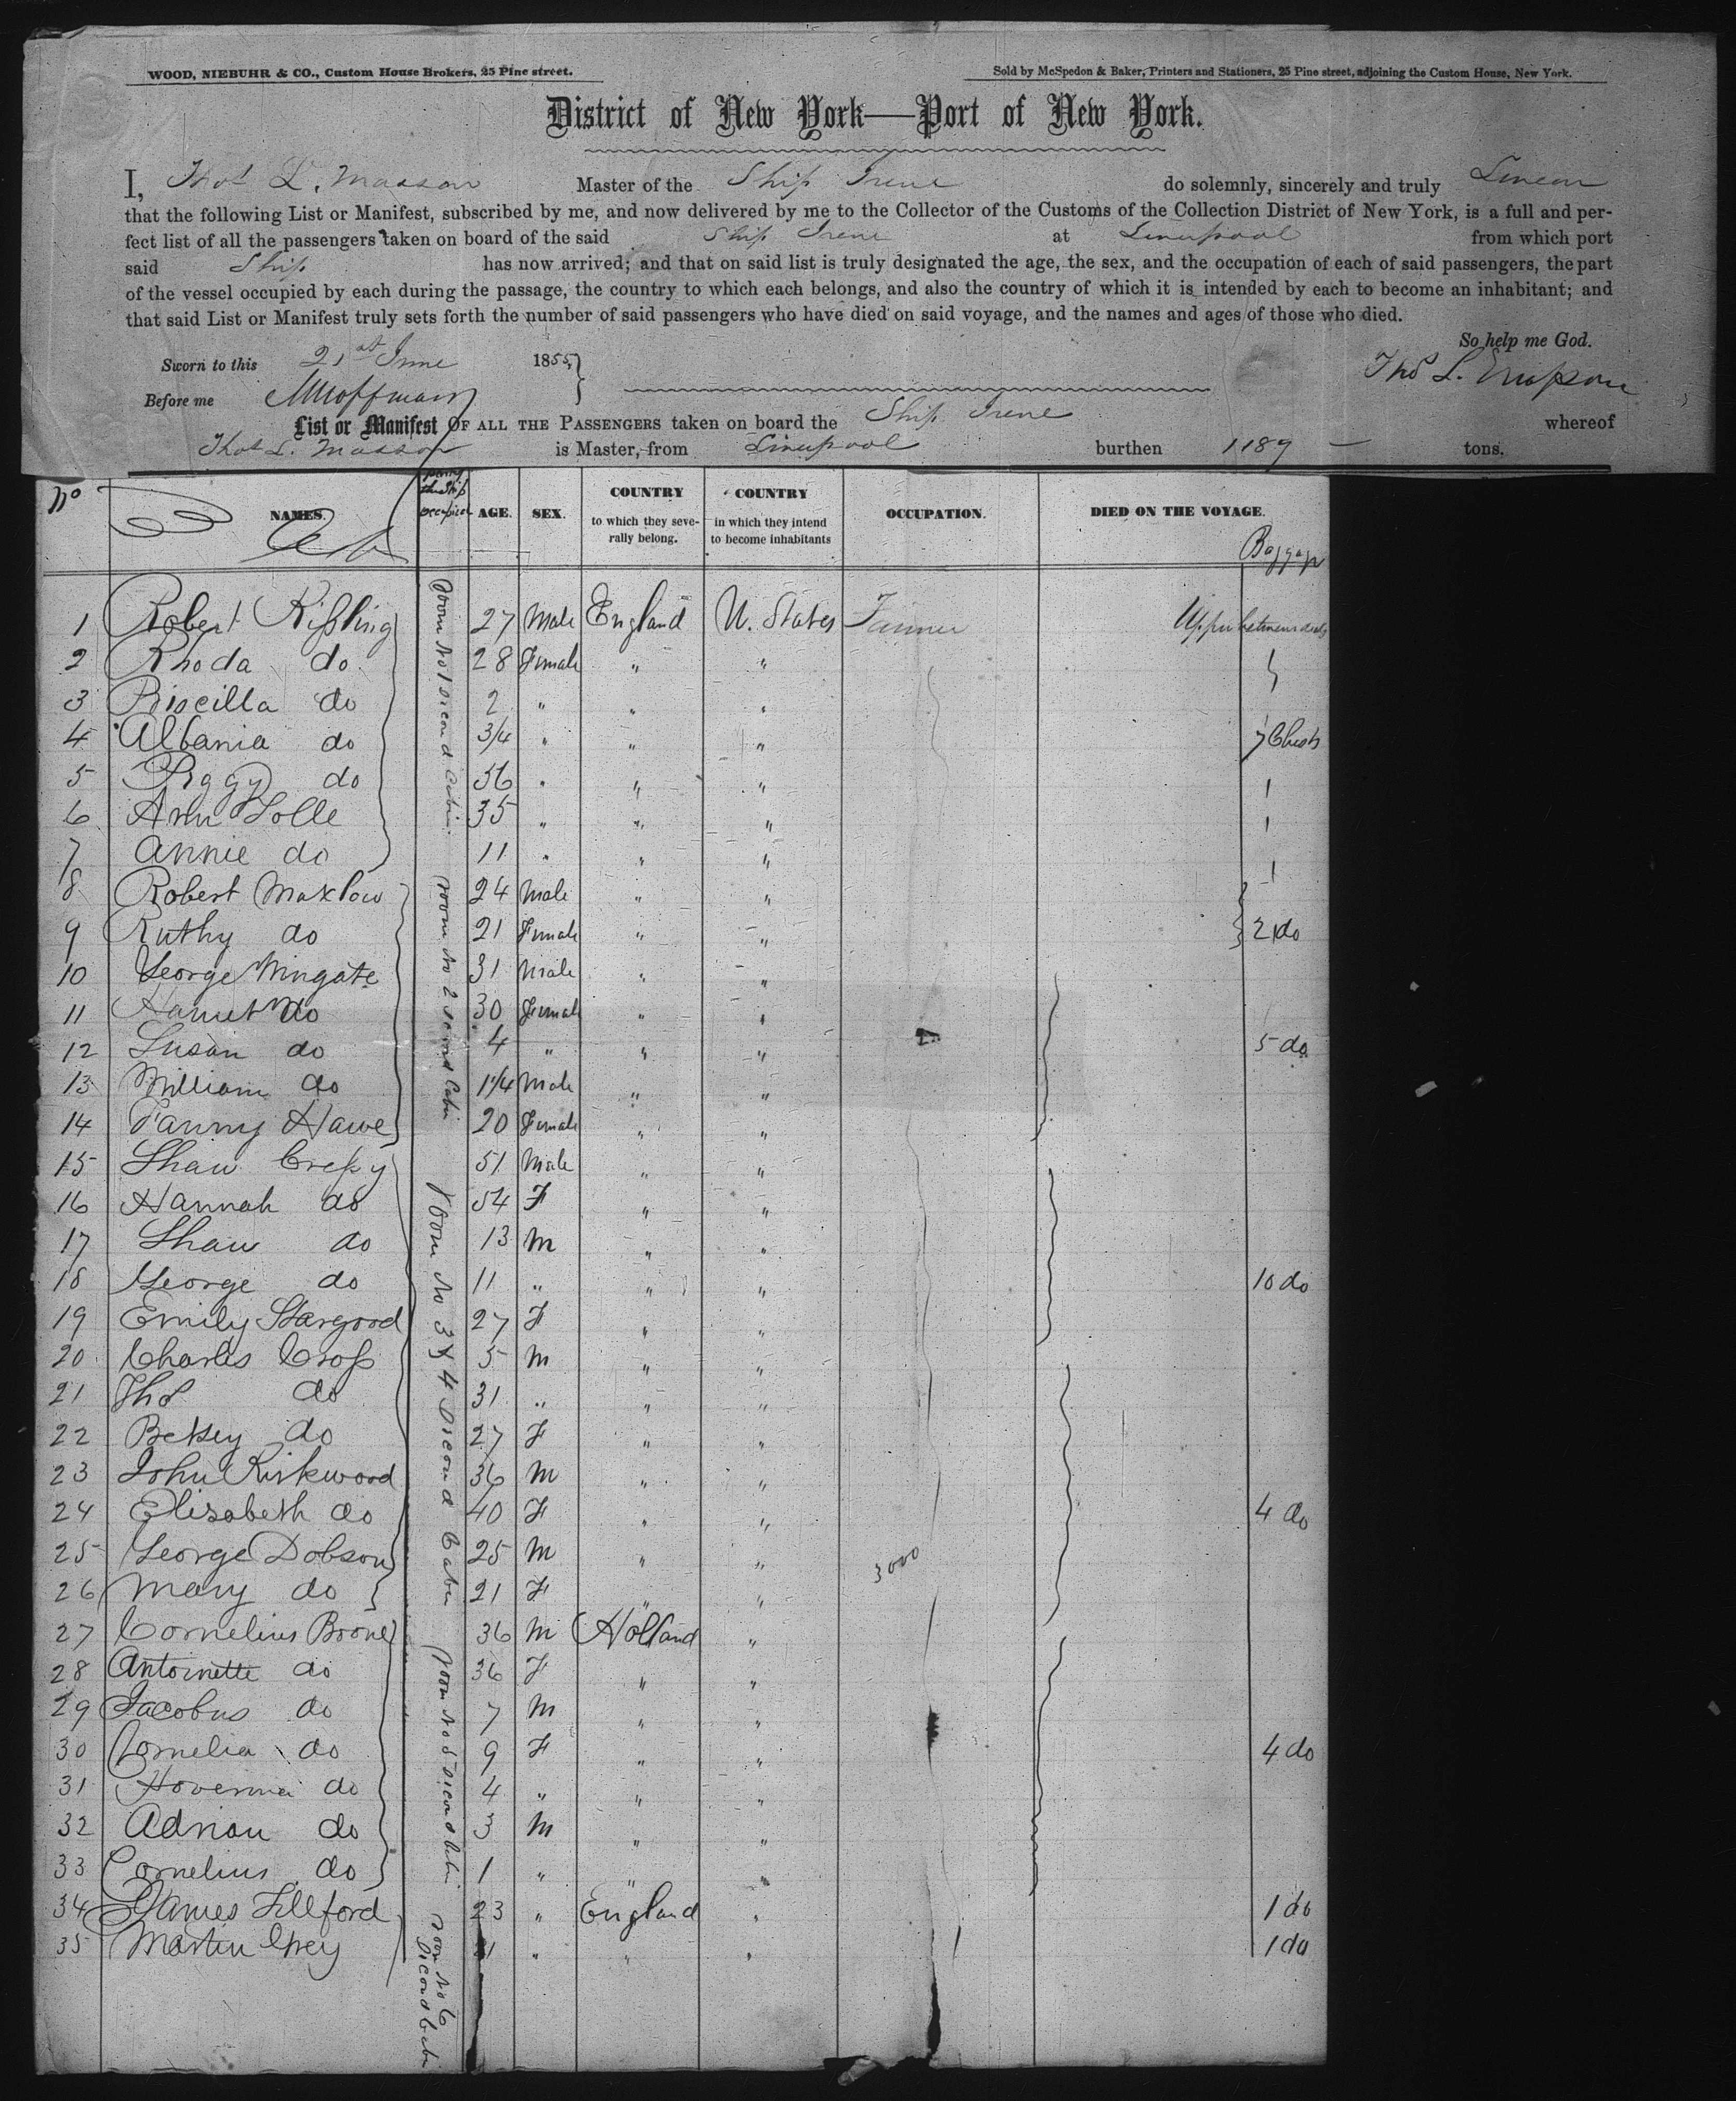 WOOD, NIEBUHR & CO., Custom House Brokers, 25 Pine street. Sold by McSpedon & Baker, Printers and Stationers, 25 Pine street, adjoining the Custom House, New York.
District of New York—Port of New York.
I, Thos L. Masson Master of the Ship Irene do solemnly, sincerely and truly Swear
that the following List or Manifest, subscribed by me, and now delivered by me to the Collector of the Customs of the Collection District of New York, is a full and per-
fect list of all the passengers taken on board of the said Ship Irene at Liverpool from which port
said Ship has now arrived; and that on said list is truly designated the age, the sex, and the occupation of each of said passengers, the part
of the vessel occupied by each during the passage, the country to which each belongs, and also the country of which it is intended by each to become an inhabitant; and
that said List or Manifest truly sets forth the number of said passengers who have died on said voyage, and the names and ages of those who died.
So help me God.
Sworn to this 21st June 1855, Thos L.
Before me
List or Manifest OF ALL THE PASSENGERS taken on board the Ship Irene whereof
Thos L. Masson is Master, from Liverpool burthen 1189 — tons.
No NAMES. part of the Ship occupied AGE. SEX. COUNTRY to which they seve-rally belong. COUNTRY in which they intend to become inhabitants OCCUPATION. DIED ON THE VOYAGE. Baggage
1 Robert Kipling Room No 1 Second Cabin 27 Male England U. States Upper between decks
2 Rhoda do 28 Female " "
3 Priscilla do 2 " " "
4 Albania do 3/4 " " " 7 Chests
5 Peggy do 56 " " " 1
6 Ann Tolle 35 " " " 1
7 Annie do 11 " " " 1
8 Robert Maxlow room No 2 Second Cabin 24 Male " "
9 Ruthy do 21 Female " " 2 do
10 George Wingate 31 Male " "
11 Harriet do 30 Female " "
12 Susan do 4 " " " 5 do
13 William do 1 1/4 Male " "
14 Fanny Hawe 20 Female " "
15 Shaw room No 3 & 4 Second Cabin 51 Male " "
16 Hannah do 54 F " "
17 Shaw do 13 M " "
18 George do 11 " " " 10 do
19 Emily Hargood 27 F " "
20 Charles Cross 5 M " "
21 Thos do 31 " " "
22 Betsey do 27 F " "
23 John Kirkwood 36 M " "
24 Elizabeth do 40 F " " 4 do
25 George Dobson 25 M " " 3000
26 Mary do 21 F " "
27 Cornelius Boone room No 5 Second Cabin 36 M Holland "
28 Antoinette do 36 F " "
29 Jacobus do 7 M " "
30 Cornelia do 9 F " " 4 do
31 do 4 " " "
32 Adrian do 3 M " "
33 Cornelius do 1 " " "
34 James Tillford room No 6 Second Cabin 23 " England " 1 do
35 Martin " " " 1 do